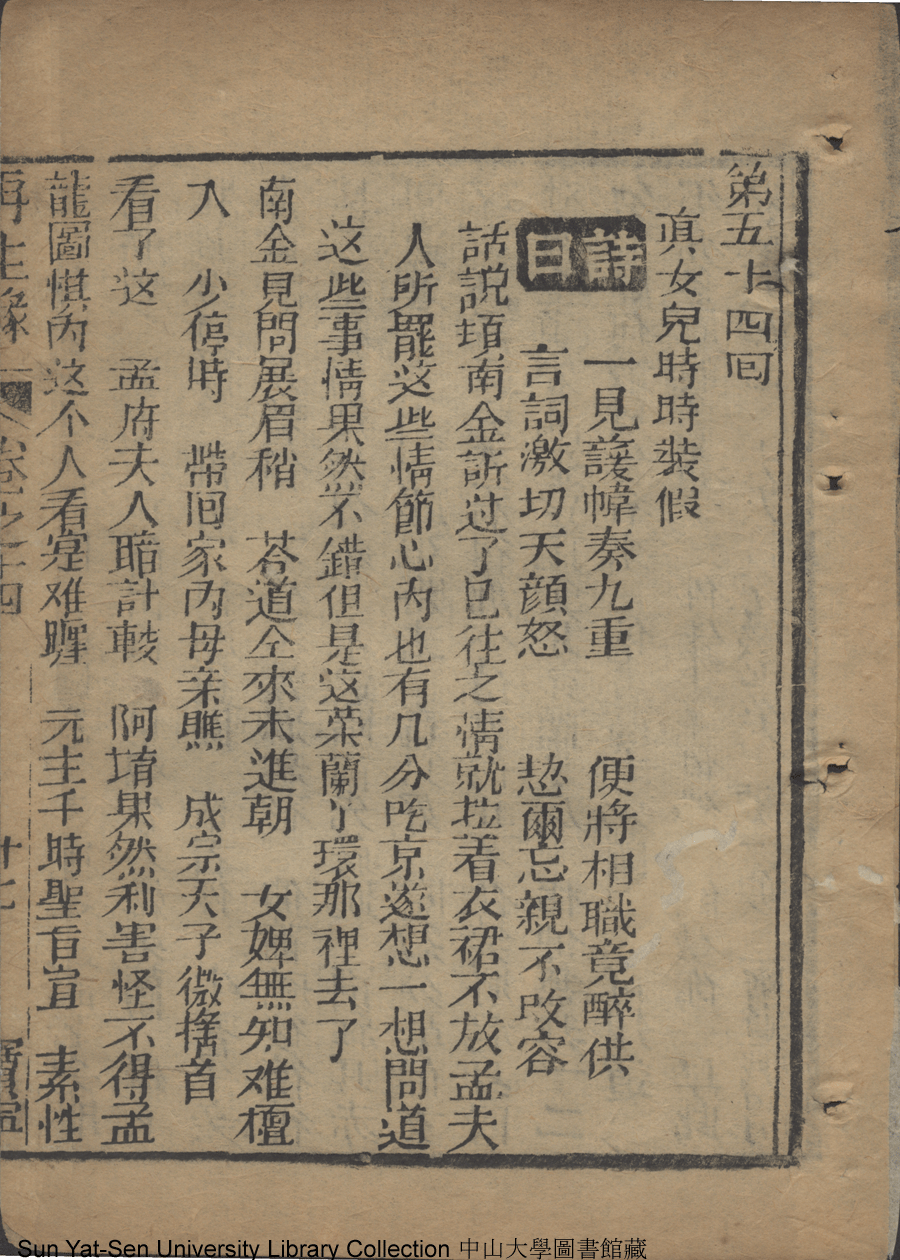 第五十四回
真女兒時時裝假
詩曰
一見護幃奏九重 便將相職竟醉供
言詞激切天顔怒 恝爾忘親不改容
話說項南金訴过了已往之情就拉着衣裙不放孟夫
人所罷这些情節心内也有几分吃京遂想一想問道
这些事情果然不錯但是这荣蘭丫環那裡去了
南金見問展眉稍 荅道仝來未進朝 女婢無知难檀
入 少停時 帶回家内母亲瞧 成宗天子微摍首
看了这 孟府夫人暗計較 阿堉果然利害怪不得孟
龍圖惧内这个人看寔难 元主千時聖旨宣 素性
再生緣 卷之十四 十七
Sun Yat-Sen University Library Collection 中山大學圖書館藏